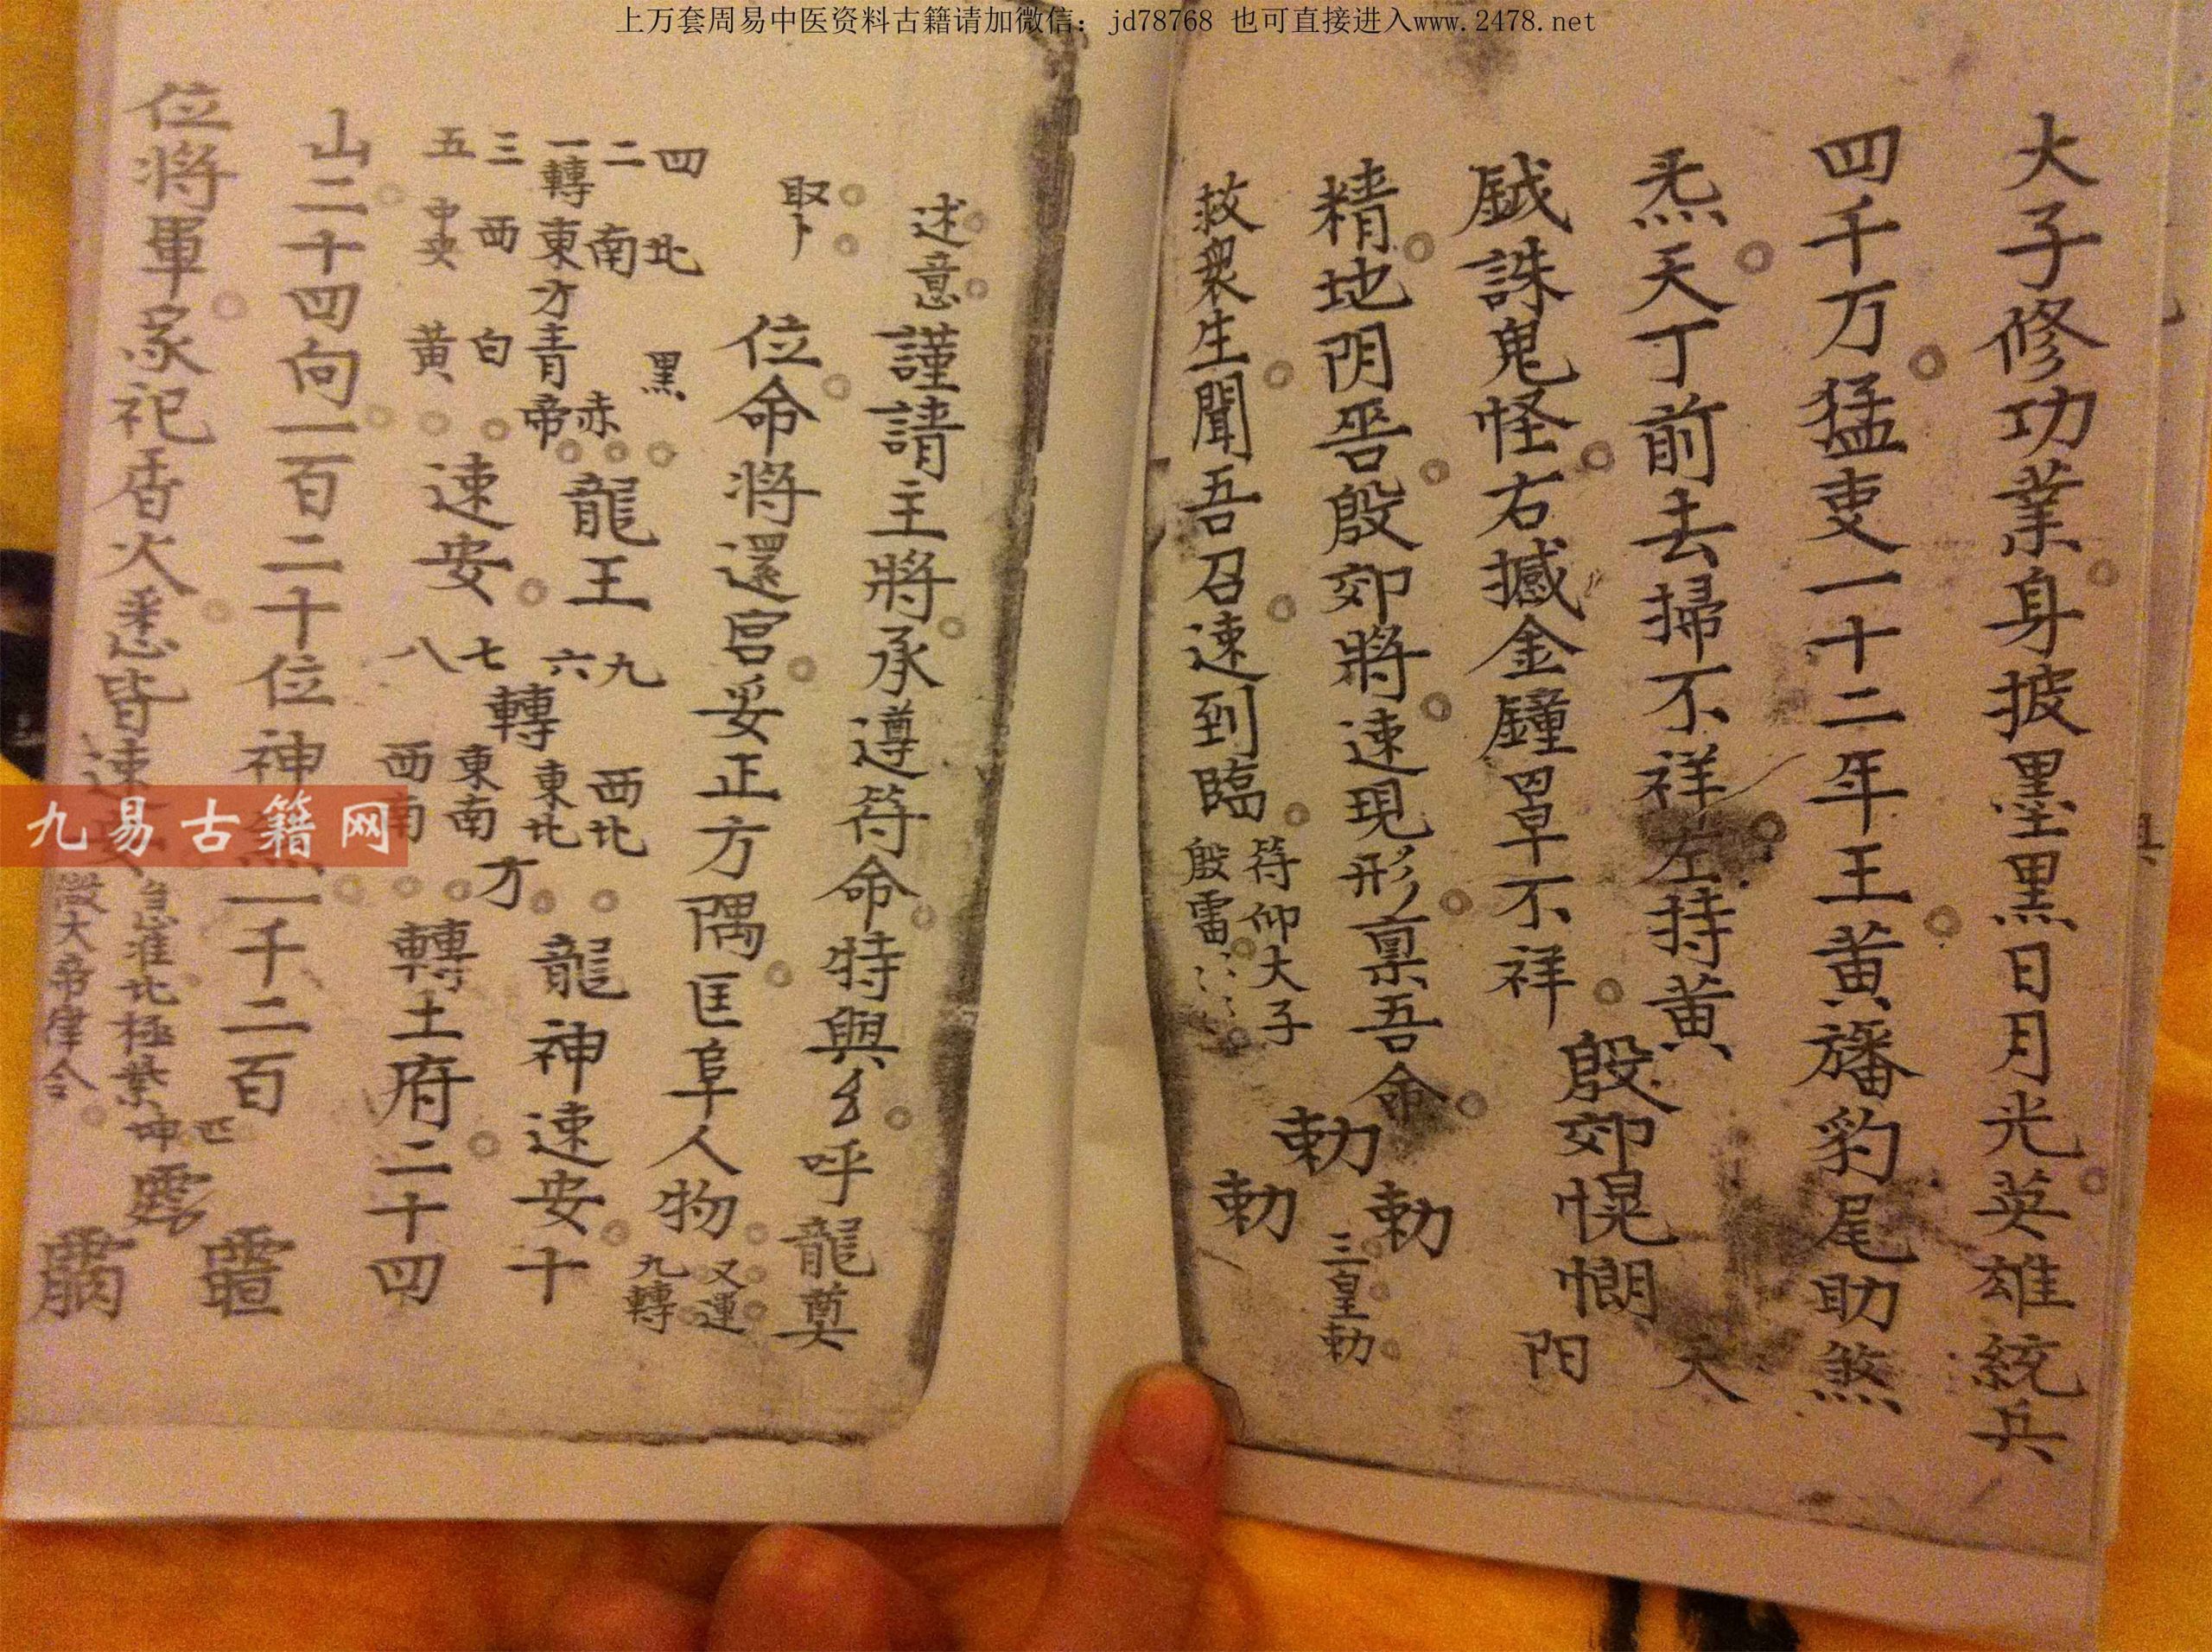 上万套周易中医资料古籍请加微信：jd78768 也可直接进入www.2478.net
大子修功業身披墨黑日月光英雄統兵
四千万猛吏一十二年王黄旛豹尾助煞
炁天丁前去掃不祥左持黄
鉞誅鬼怪右撼金鐘罩不祥
殷郊愰惘
天
陌
精地阴晋殷郊將速現形禀吾命
勅
勅
勅
三皇勅
救衆生聞吾召速到臨
符仰大子
殷雷
述意
謹請主將承遵符命特與 呼龍奠
取卜
位命將還宫妥正方隅匡阜人物
又運
九轉
四北黑
二南赤
一轉東方青帝
三西白
五中央黄
龍王
速安
九西北
六東北
轉
方
七東南
八西南
龍神速安十
轉土府二十四
山二十四向一百二十位神煞一千二百
位將軍家祀香火悉皆速安
准北極紫
微大帝律令
九易古籍网